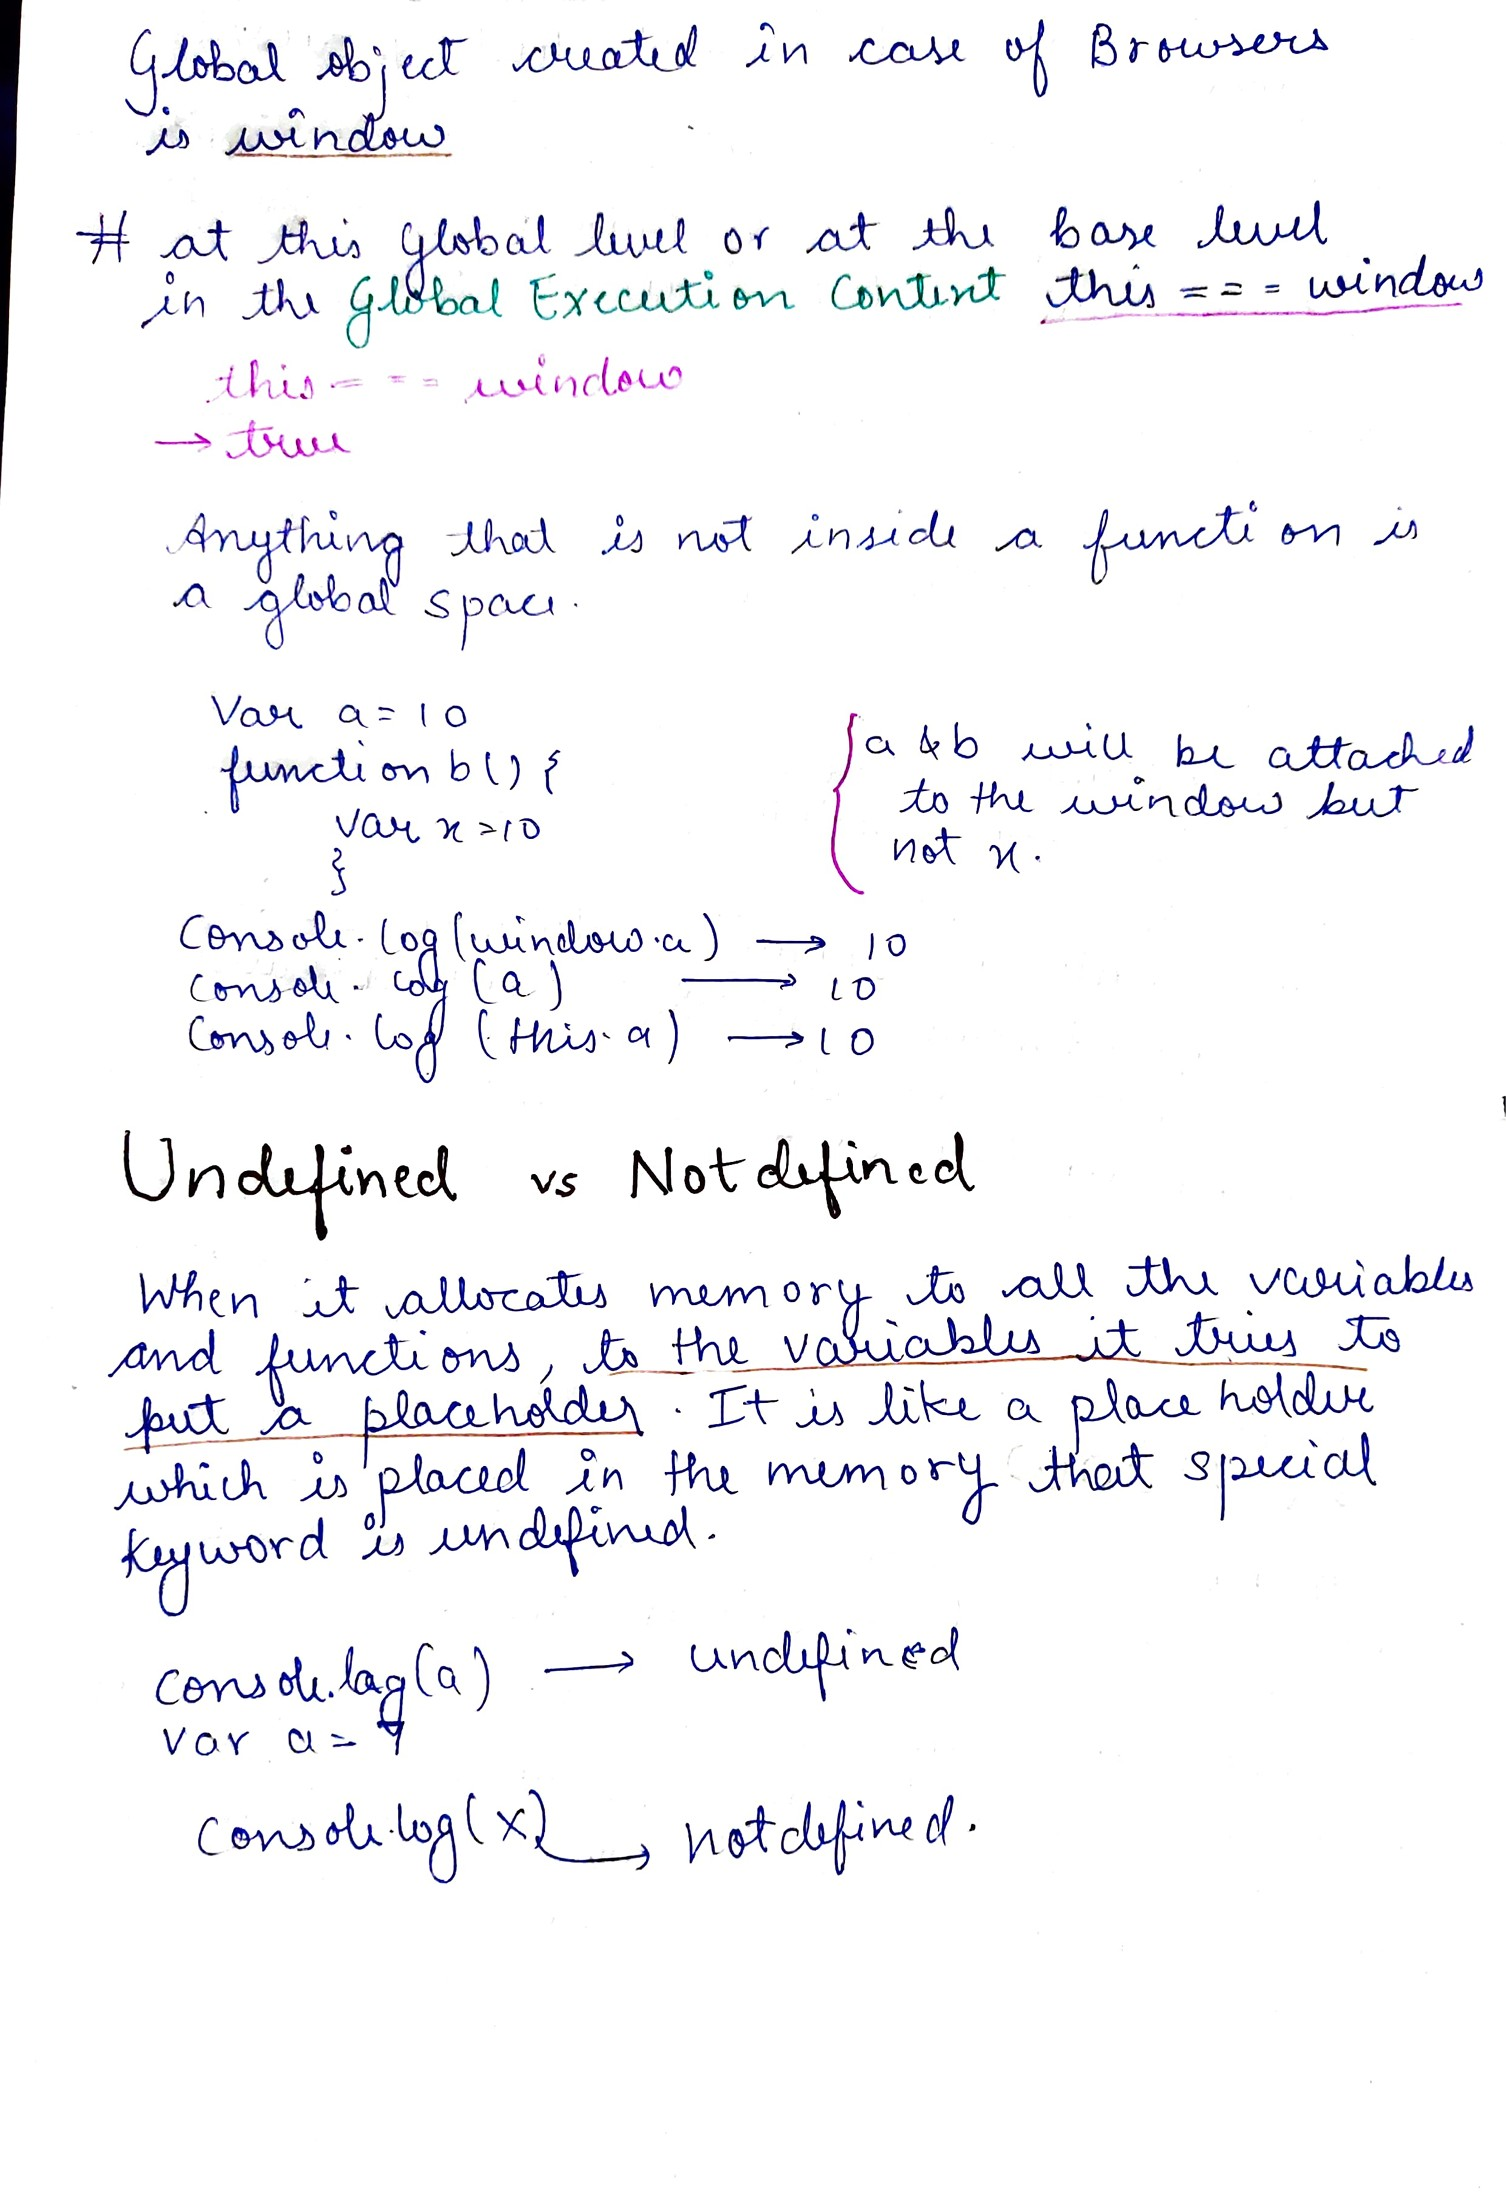 Global object created in case of Browsers
is window
# at this global level or at the base level
in the Global Execution Context this === window
this === window
→ true
Anything that is not inside a function is
a global space.
Var a = 10
function b() {
var x = 10
}
{ a & b will be attached
to the window but
not x.
Console.log(window.a) → 10
Console.log(a) → 10
Console.log(this.a) → 10
Undefined vs Not defined
When it allocates memory to all the variables
and functions, to the variables it tries to
put a placeholder. It is like a place holder
which is placed in the memory that special
keyword is undefined.
console.log(a) → undefined
var a = 7
Console.log(x) → not defined.